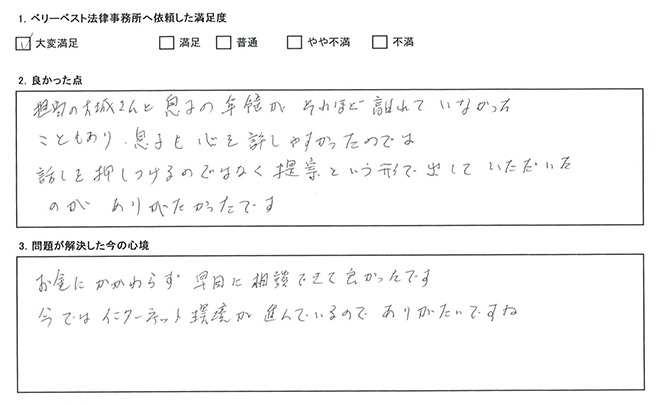 1. ベリーベスト法律事務所へ依頼した満足度
大変満足 満足 普通 やや不満 不満
2. 良かった点
担当の大城さんと 息子の 年齢が それほど 離れて いなかった
こともあり、息子も 心を 許しやすかったのでは
話しを 押しつけるのではなく 提案 という 形で 出して いただいた
のが ありがたかったです
3. 問題が解決した今の心境
お金に かかわらず 早日に 相談できて 良かったです
今では インターネット 環境が 進んでいるので ありがたいですね